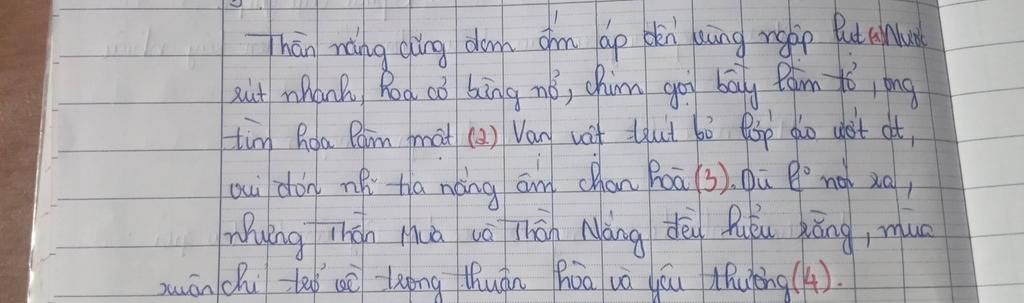 Thần nắng cũng đem ấm áp đến vùng ngập lụt (1) Nước
rút nhanh, hoa cỏ bừng nở, chim gọi bầy làm tổ, ong
tìm hoa làm mật (2) Vạn vật trút bỏ lớp áo ướt át,
vui đón những tia nắng ấm chan hoà (3). Dù ở nơi xa,
nhưng Thần Mưa và Thần Nắng đều hiểu rằng, mùa
xuân chỉ trở về trong thuận hòa và yêu thương (4).